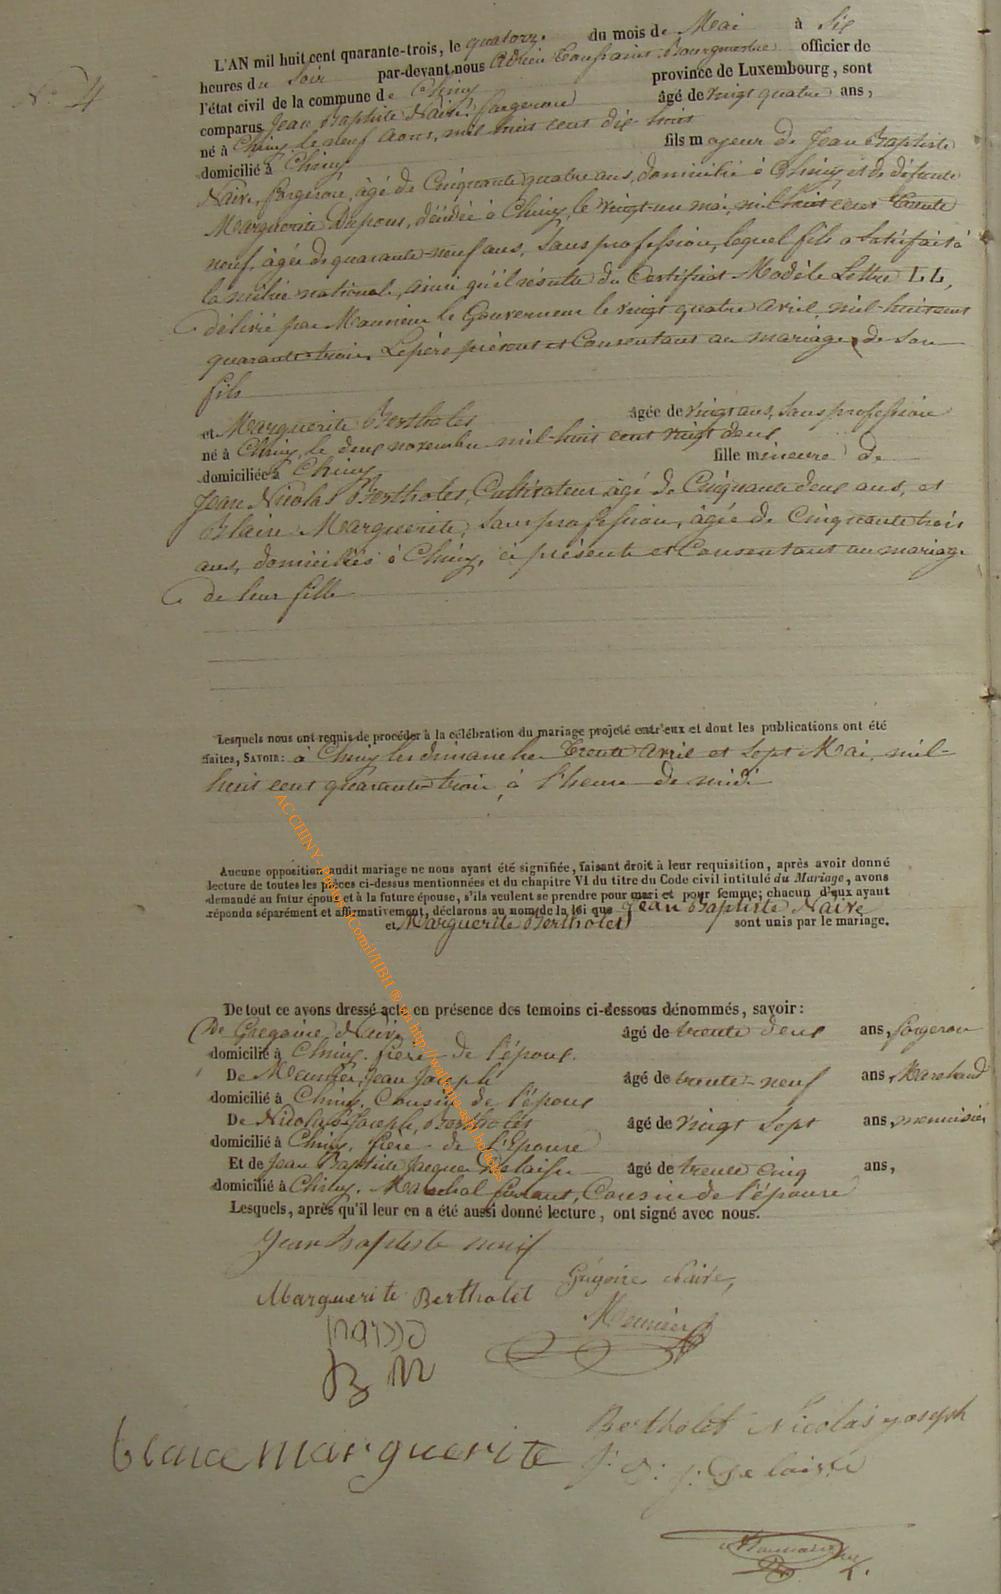 N° 4
L'AN mil huit cent quarante-trois, le quatorze du mois de Mai à six
heures du soir par-devant nous Adrien Toussaint Bourgmestre officier de
l'état civil de la commune de Chiny province de Luxembourg, sont
comparus Jean Baptiste Naive, forgeron âgé de vingt quatre ans,
né à Chiny le neuf Aout, mil huit cent dix-huit
domicilié à Chiny fils majeur de Jean Baptiste
Naive, forgeron, âgé de Cinquante quatre ans, domicilié à Chiny et de défunte
Marguerite Dupont, décédée à Chiny, le vingt un mai, mil huit cent Trente
neuf, âgée de quarante-neuf ans, Sans profession, lequel fils a Satisfait à
la milice nationale, ainsi qu'il résulte du Certificat Modèle Lettre LL,
délivré par Monsieur le Gouverneur le vingt quatre Avril, mil-huit cent
quarante-trois, Le père présent et Consentant au mariage de son
fils
et Marguerite Bertholet âgée de vingt ans, Sans profession
né à Chiny, le deux novembre mil-huit cent vingt deux
domiciliée à Chiny fille mineure de
Jean Nicolas Bertholet, Cultivateur âgé de Cinquante deux ans, et
Blaise Marguerite, Sans profession, âgée de Cinquante trois
ans, domiciliés à Chiny, ci présents et Consentant au mariage
de leur fille
Lesquels nous ont requis de procéder à la célébration du mariage projeté entr'eux et dont les publications ont été
faites, SAVOIR: à Chiny les dimanche Trente Avril et Sept Mai, mil-
huit cent quarante-trois, à l'heure de midi
Aucune opposition audit mariage ne nous ayant été signifiée, faisant droit à leur requisition, après avoir donné
lecture de toutes les pièces ci-dessus mentionnées et du chapitre VI du titre du Code civil intitulé du Mariage, avons
demandé au futur époux et à la future épouse, s'ils veulent se prendre pour mari et pour femme; chacun d'eux ayant
répondu séparément et affirmativement, déclarons au nom de la loi que Jean Baptiste Naive
et Marguerite Bertholet sont unis par le mariage.
De tout ce avons dressé acte en présence des temoins ci-dessous dénommés, savoir:
De Gregoire Naive âgé de trente deux ans, forgeron
domicilié à Chiny, frère de l'époux.
De Meunier, Jean Joseph âgé de trente-neuf ans, Marchand
domicilié à Chiny, Cousin de l'époux
De Nicolas Joseph, Bertholet âgé de vingt Sept ans, menuisier
domicilié à Chiny, frère de l'Epouse
Et de Jean Baptiste Jacques Delaisse âgé de trente cinq ans,
domicilié à Chiny, Marechal ferrant, Cousin de l'épouse
Lesquels, après qu'il leur en a été aussi donné lecture, ont signé avec nous.
Jean Baptiste
Marguerite Bertholet
Grégoire Naive,
Meunier
Bertholet Nicolas yoseph
blaice Marguerite
J. B. J. Delaisse